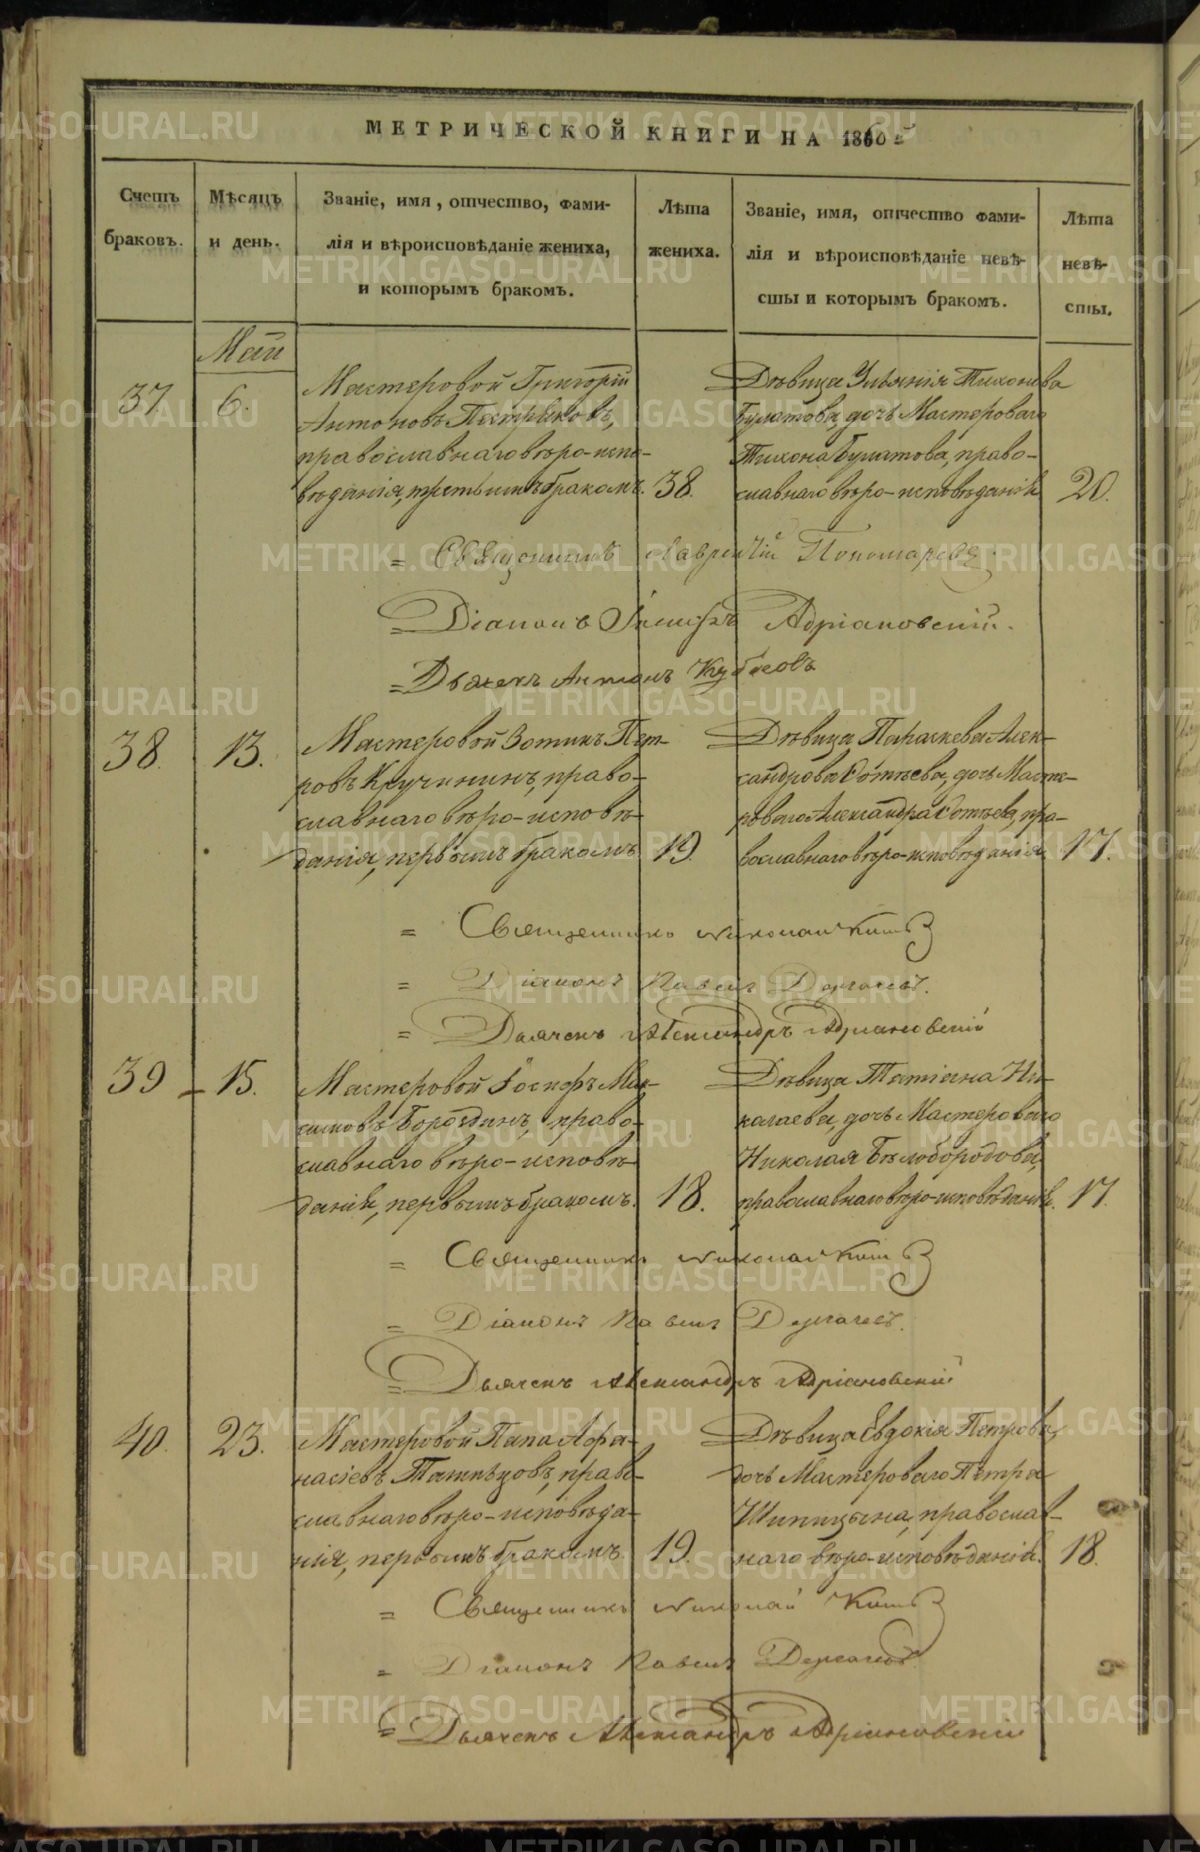 МЕТРИЧЕСКОЙ КНИГИ НА 1865
Счетъ браковъ.
Мѣсяцъ и день.
Званіе, имя, отчество, фами-
лія и вѣроисповѣданіе жениха,
и которымъ бракомъ.
Лѣта
жениха.
Званіе, имя, отчество фами-
лія и вѣроисповѣданіе невѣ-
сты и которымъ бракомъ.
Лѣта
невѣ-
сты.
Май
37
6.
Мастеровой Григорій
Антоновъ Пестряковъ,
православнаго вѣро-испо-
вѣданія, третьимъ бракомъ.
38.
Дѣвица Ульянія Тихонова
Булатова, дочь Мастероваго
Тихона Булатова, право-
славнаго вѣро-исповѣданія
20.
= Священникъ Лаврентій Пономаревъ.
= Діаконъ Іосифъ Адріановскій.
= Дьячекъ Антонъ Кубасовъ
38.
13.
Мастеровой Зотикъ Пет-
ровъ Кручининъ, право-
славнаго вѣро-исповѣ-
данія, первымъ бракомъ
19.
Дѣвица Параскева Алек-
сандрова Фотѣева, дочь Масте-
роваго Александра Фотѣева, пра-
вославнаго вѣро-исповѣданія
17.
= Священникъ Николай
= Діаконъ Павелъ Дергачевъ.
= Дьячекъ Александръ Адріановскій
39
15.
Мастеровой Іосифъ Мак-
симовъ Бороздинъ, право-
славнаго вѣро-исповѣ-
данія, первымъ бракомъ.
18.
Дѣвица Татіана Ни-
колаева, дочь Мастероваго
Николая Бѣлобородова,
православнаго вѣро-исповѣданія.
17.
= Священникъ Николай
= Діаконъ Павелъ Дергачевъ.
= Дьячекъ Александръ Адріановскій
40.
23.
Мастеровой Папа Афа-
насіевъ право-
славнаго вѣро-исповѣда-
нія, первымъ бракомъ.
19.
Дѣвица Евдокія Петрова,
дочь Мастероваго Петра
Шипицына, православ-
наго вѣро-исповѣданія.
18.
= Священникъ Николай
= Діаконъ Павелъ Дергачевъ.
= Дьячекъ Александръ Адріановскій
METRIKI.GASO-URAL.RU